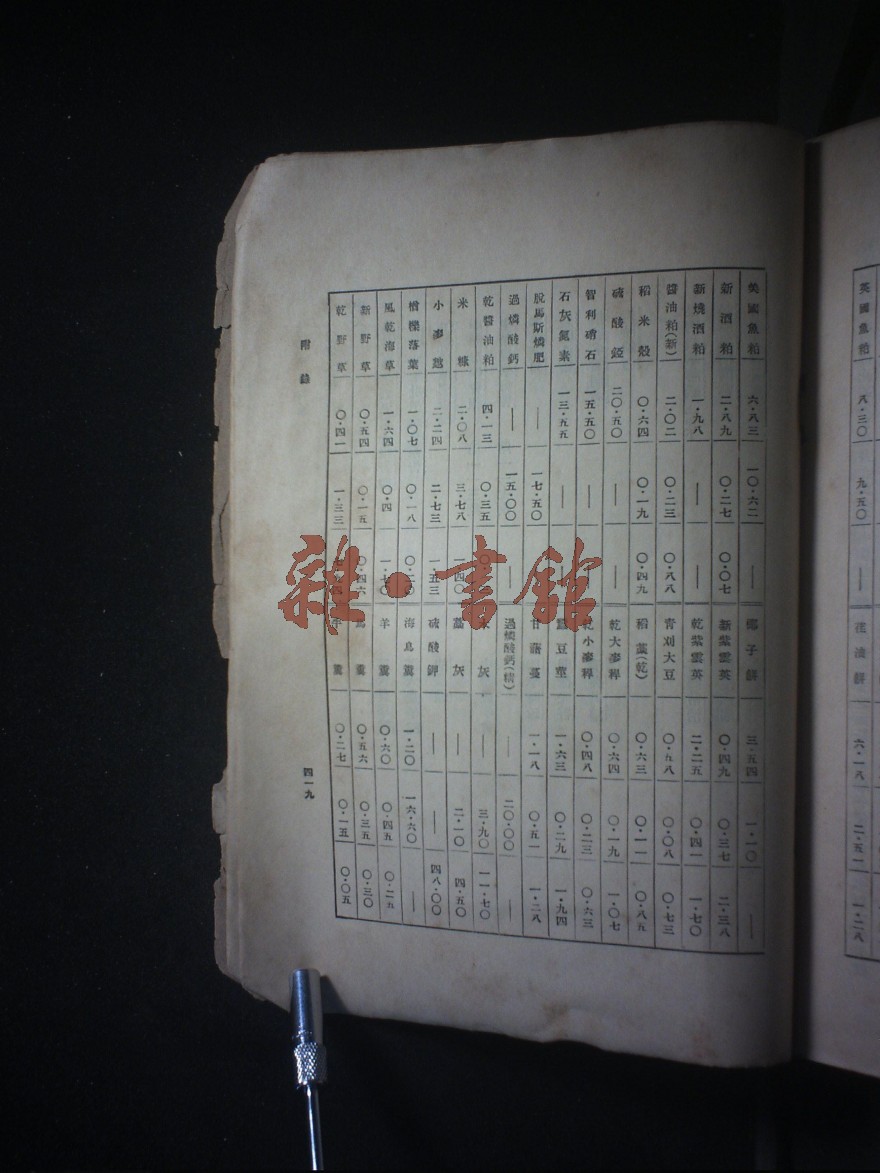 美國魚粕 六·八三 一〇·六二 —— 椰子餅 三·五四 一·一〇 ——
新酒粕 二·八九 〇·二七 〇·〇七 新紫雲英 〇·四九 〇·三七 二·三八
新燒酒粕 一·九八 —— —— 乾紫雲英 二·二五 〇·四一 一·七〇
醬油粕(新) 二·〇二 〇·二三 〇·八八 青刈大豆 〇·五八 〇·〇八 〇·七三
稻米殼 〇·六四 〇·一九 〇·四九 稻藁(乾) 〇·六三 〇·一一 〇·八五
硫酸錏 二〇·五〇 —— —— 乾大麥稈 〇·六四 〇·一九 一·〇七
智利硝石 一五·五〇 —— —— 乾小麥稈 〇·四八 〇·二三 〇·六三
石灰氮素 一三·五五 —— —— 豆莖 一·六三 〇·二九 一·九四
脫馬斯燐肥 —— 一七·五〇 甘藷蔓 一·一八 〇·五一 一·二八
過燐酸鈣 —— 一五·〇〇 —— 過燐酸鈣(精) —— 二〇·〇〇 ——
乾醬油粕 四·一三 〇·三五 灰 —— 三·九〇 一一·七〇
米糠 二·〇八 三·七八 一·四〇 灰 —— 二·一〇 四·五〇
小麥麩 二·二四 二·七三 一·五三 硫酸鉀 —— —— 四八·〇〇
楢櫟落葉 一·〇七 〇·一八 〇·二〇 海鳥糞 一·二〇 一六·六〇 ——
風乾海草 一·六四 〇·四 一·七〇 羊糞 〇·六〇 〇·四五 〇·二五
新野草 〇·五四 〇·一五 〇·四六 馬糞 〇·五六 〇·三五 〇·三〇
乾野草 〇·四一 一·三三 牛糞 〇·二七 〇·一五 〇·〇五
附錄
四一九
英國魚粕 八·三〇 九·五〇 —— 花油餅 六·一八 二·五一 一·二八
雜·書館